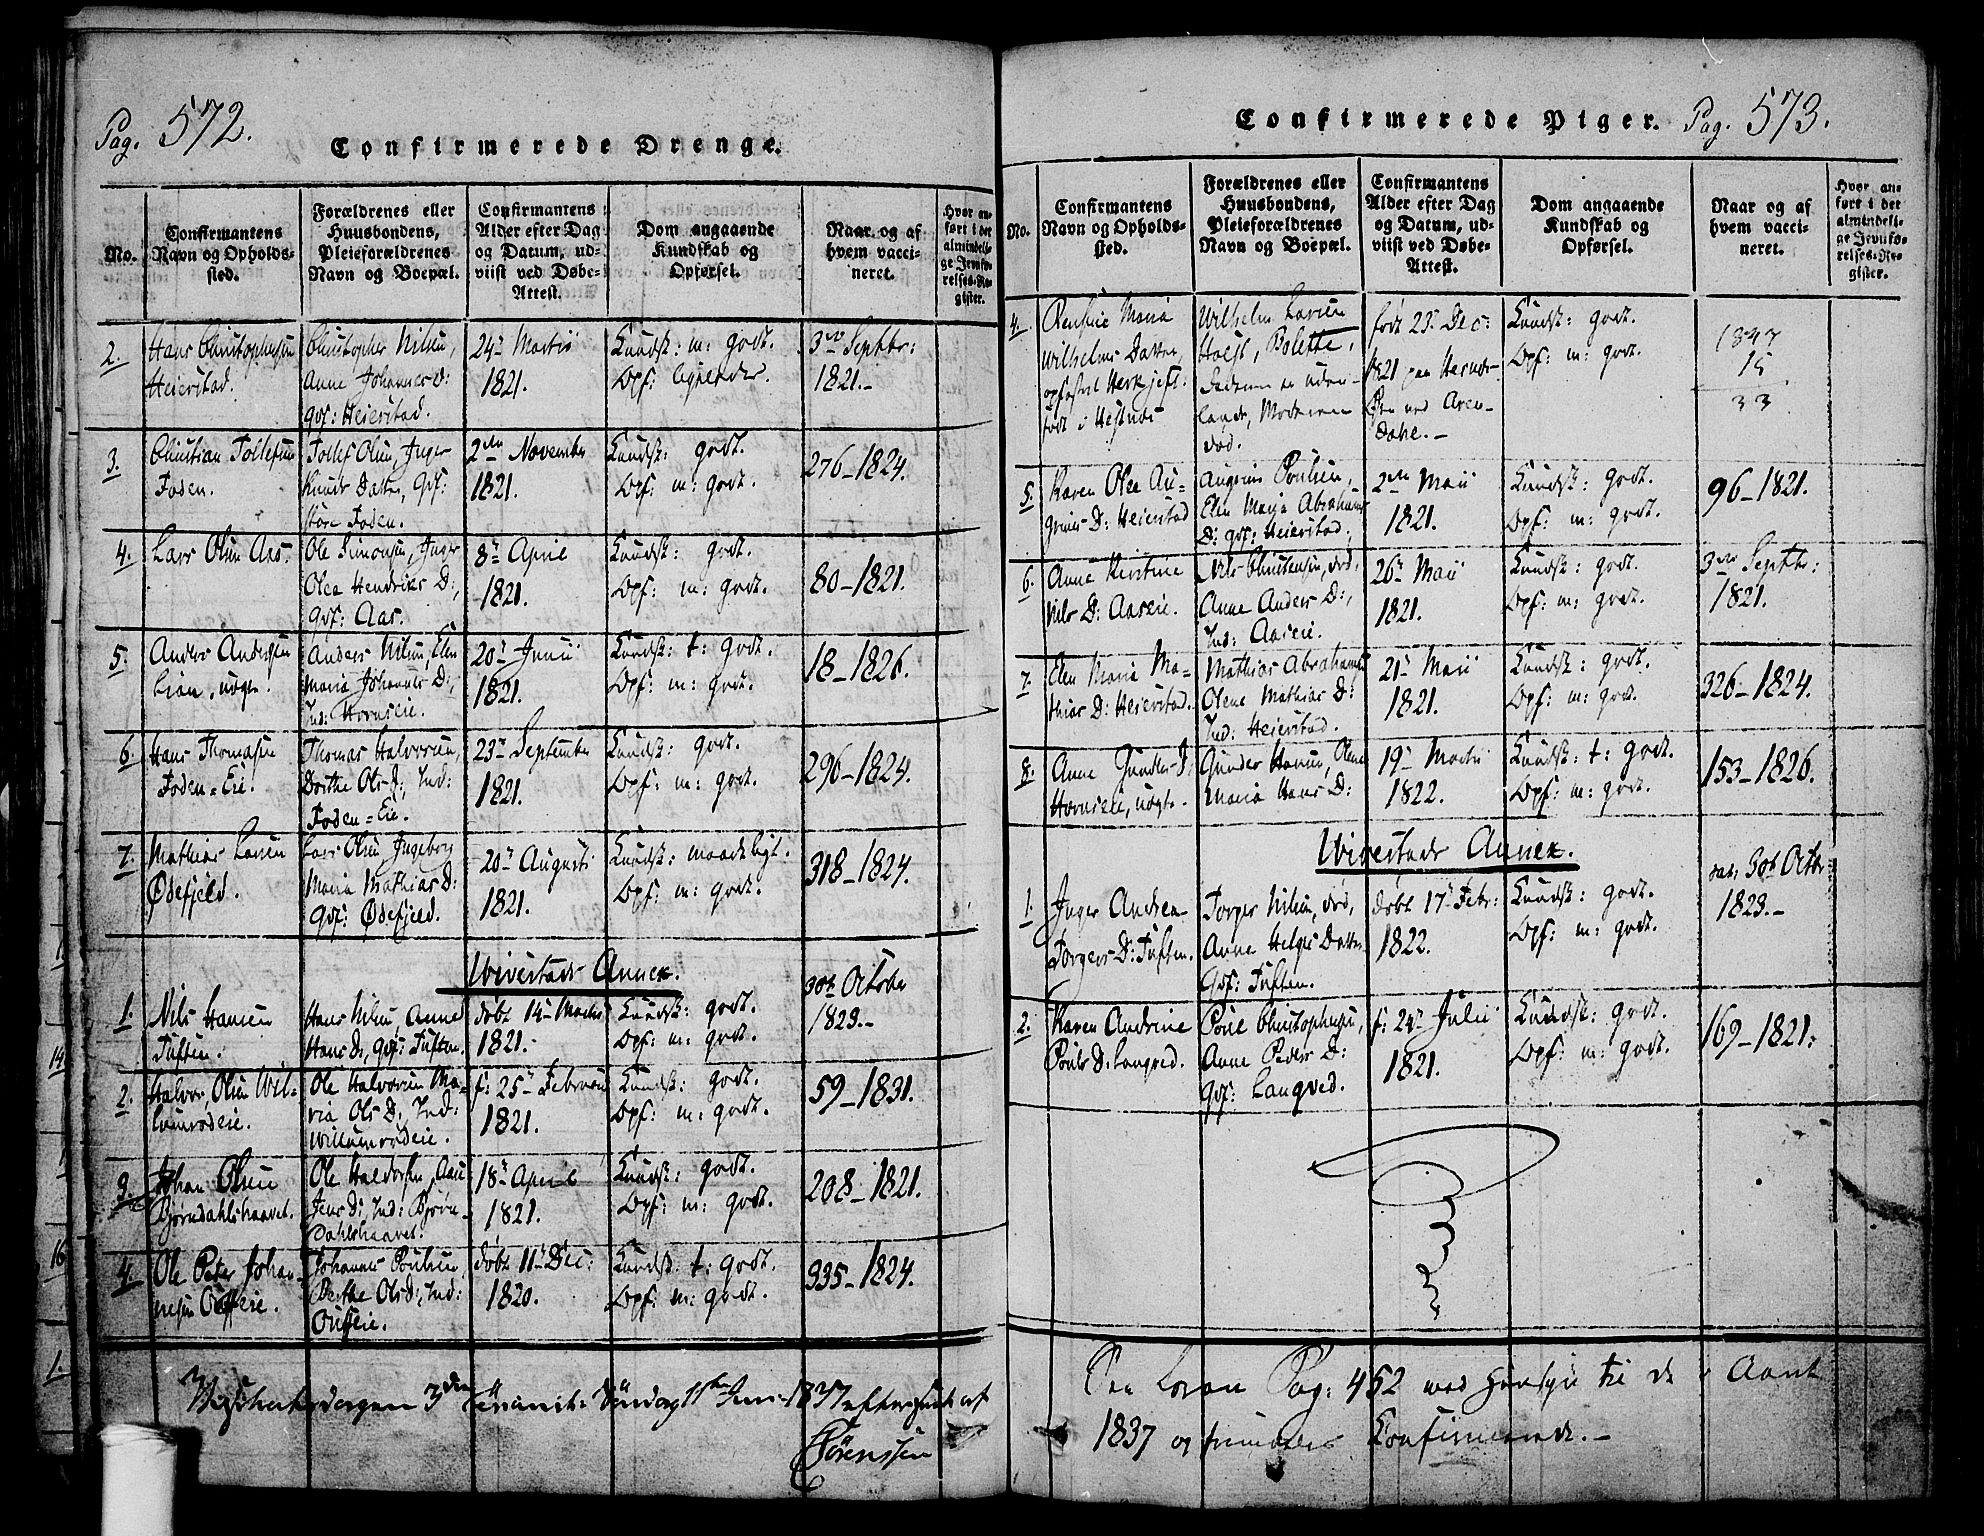 Pag. 572.
Confirmerede Drenge.
No.
Confirmantens
Navn og Opholds-
sted.
Forældrenes eller
Huusbondens,
Pleieforældrenes
Navn og Boepæl.
Confirmantens
Alder efter Dag
og Datum, ud-
viist ved Døbe-
Attest.
Dom angaaende
Kundskab og
Opførsel.
Naar og af
hvem vacci-
neret.
Hvor an-
ført i det
almindeli-
ge Jevnfø-
relses-Re-
gister.
2.
Hans Christophersen
Heierstad.
Christopher Nilsen,
Anne Johannes D:
Gdf: Heierstad.
24de Martii
1821.
Kundsk: m: godt.
Opf:
3die Septbr:
1821.-
3.
Christian Tollefsen
Foden.
Tollef Olsen, Inger
Knuds Datter, Gdf:
støre Foden.
2den November
1821.
Kundsk: godt.
Opf: m: godt.
276-1824.
4.
Lars Olsen Aas.
Ole Simonsen, Inger
Olea Hendriks D:,
Gdf: Aas.
8de April
1821.
Kundsk: godt.
Opf: m: godt.
80-1821.
5.
Anders Anderssen
Lian,
Anders Nilsen, Elen
Maria Johannes D:,
Ind: Hornseie.
20de Junii
1821.
Kundsk: t: godt.
Opf: m: godt.
18-1826.
6.
Hans Thomasen
Foden-Eie.
Thomas Halvorsen,
Dorthe Ols D:, Ind:
Foden-Eie.
23de September
1821.
Kundsk: godt.
Opf: m: godt.
296-1824.
7.
Mathias Larsen
Ødefjeld.
Lars Olsen Ingeborg
Maria Mathias D:
Gdf: Ødefjeld.
20de Augusti
1821.
Kundsk: maadeligt.
Opf: m: godt.
318-1824.
Wivestads Annex.
1.
Nils Hansen
Tuften.
Hans Nilsen, Anne
Hans D:, Gdf: Tuften.
døbt 14de Martii
1821.-
Kundsk: godt.
Opf: m: godt.
30te October
1823.-
2.
Halvor Olsen Wil-
lumrødeie.
Ole Halvorsen Ma-
ria Ols D: Ind:
Willumrødeie.
f: 25de Februar
1821.
Kundsk: godt.
Opf: m: godt.
59-1831.
3.
Johan Olsen
Bjørndahlshaavet.
Ole Haldorsen,
Jens D:, Ind: Bjørn-
dahlshaavet.
18de April
1821.
Kundsk: godt.
Opf: m: godt.
208-1821.
4.
Ole Peter Johan-
nesen
Johannes Poulsen,
Berthe Ols D:, Ind:
døbt 11te Dec:
1820.
Kundsk: t: godt.
Opf: m: godt.
935-1824.
3den
Søndag 11te Juni 1837 efterseet af
Sörenssen
Confirmerede Piger.
Pag. 573.
No.
Confirmantens
Navn og Opholds-
sted.
Forældrenes eller
Huusbondens,
Pleieforældrenes
Navn og Boepæl.
Confirmantens
Alder efter Dag
og Datum, ud-
viist ved Døbe-
Attest.
Dom angaaende
Kundskab og
Opførsel.
Naar og af
hvem vacci-
neret.
Hvor an-
ført i det
almindeli-
ge Jevnfø-
relses-Re-
gister.
4.
Maria
Wilhelms Datter,
opfostret
født i Hestnæs
Wilhelm Larsen
Holst, Bolette,
Faderen er uden-
lands, Moderen
død.
født 23de Dec:
1821 paa
Øen ved Aren-
dahl.-
Kundsk: godt.
Opf: m: godt.
1847
15
33
5.
Karen Olea Au-
grines D: Heierstad
Augrines Poulsen,
Elen Maria Abrahams
D: Gdf: Heierstad.
2den Maii
1821.
Kundsk: godt.
Opf: m: godt.
96-1821.
6.
Anne Kirstine
Nils D: Aaseie.
Nils Christensen, død,
Anne Anders D:,
Ind: Aaseie.
26de Maii
1821.
Kundsk: godt.
Opf: m: godt.
3die Septbr:
1821.
7.
Elen Maria Ma-
thias D: Heierstad.
Mathias Abrahams
Olene Mathias D:
Ind: Heierstad.
21de Maii
1821.
Kundsk: godt.
Opf: m: godt.
326-1824.
8.
Anne Gunders D.
Hornseie,
Gunder Hansen, Olene
Maria Hans D:
19de Martii
1822.
Kundsk: t: godt.
Opf: m: godt.
153-1826.
Wivestads Annex.
1.
Inger Andrea
Torgers D: Tuften.
Torger Nilsen, død,
Anne Helges Datter
Gdf: Tuften.
døbt 17de Febr:
1822.
Kundsk: godt.
Opf: m: godt.
30te Octbr
1823.-
2.
Karen Andrine
Pouls D: Langved.
Poul Christophersen,
Anne Peders D:
Gdf: Langved.
f: 24de Julii
1821.
Kundsk: godt.
Opf: m: godt.
169-1821.
Pag: 452 med Hensyn til de i Aaret
1837 og Confirmerede.-